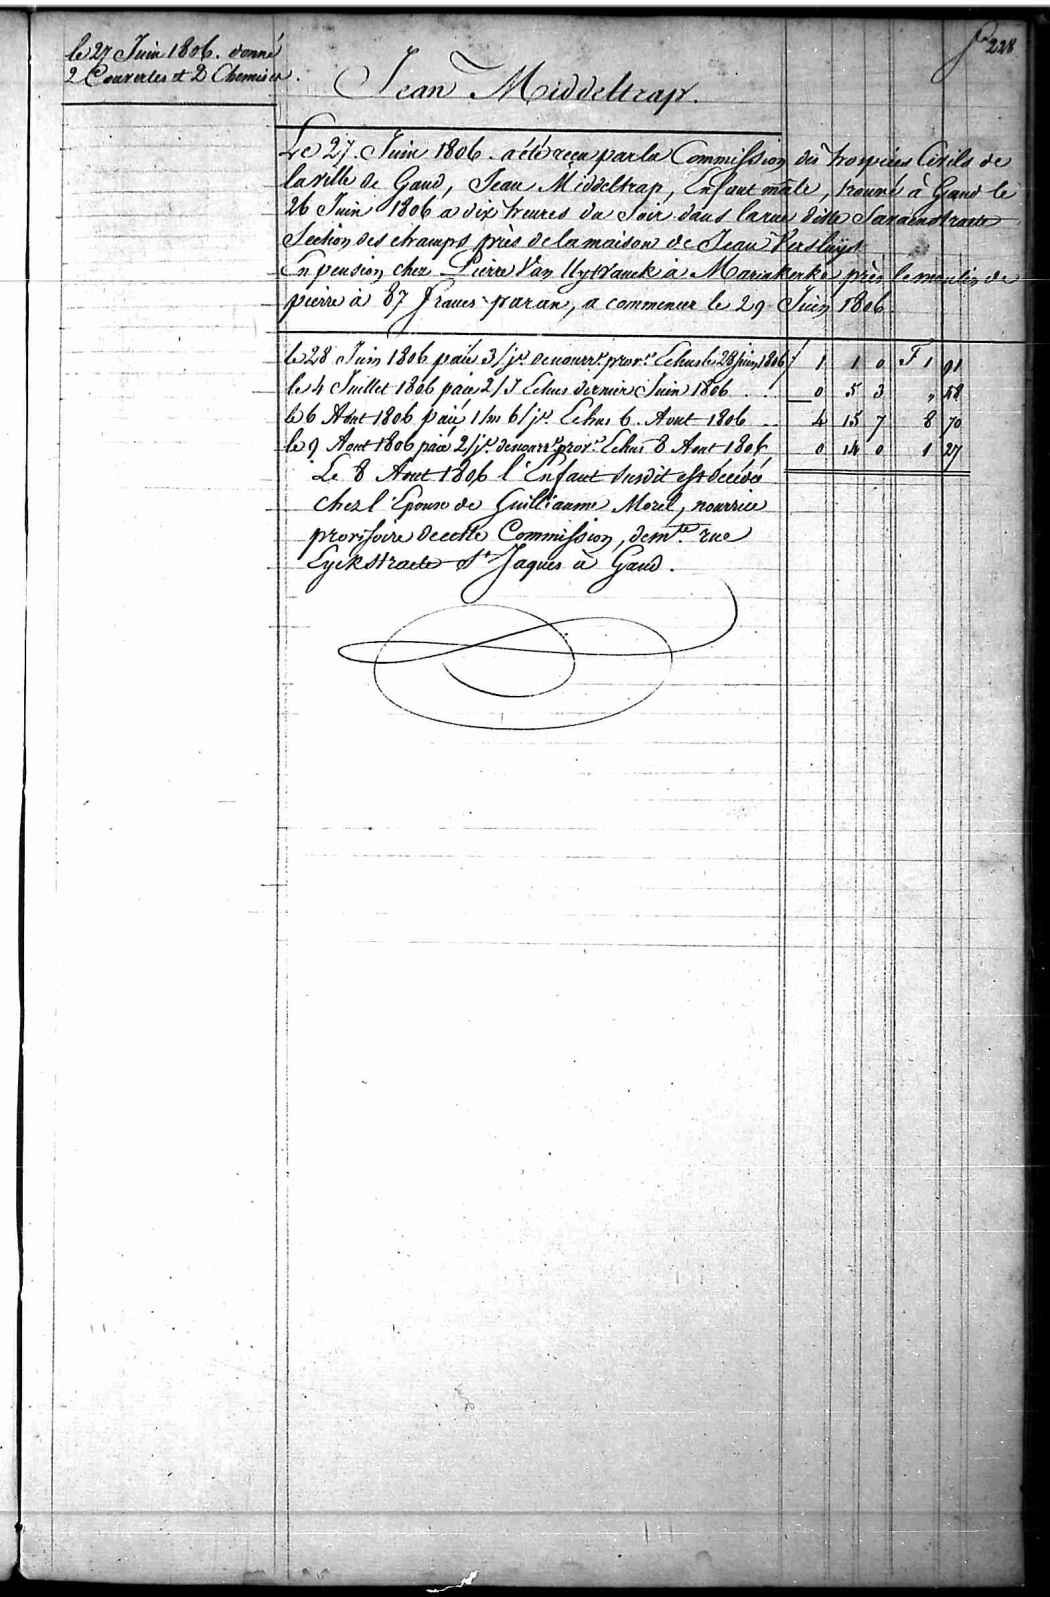 fo 228
le 27 Juin 1806. donné
2 Couvertes et 2 Chemises.
Jean Middeltrap.
Le 27. Juin 1806. a été reçu par la Commission des hospices Civils de
la ville de Gand, Jean Middeltrap, Enfant mâle, trouvé à Gand le
26 Juin 1806 a dix heures du Soir dans la rue dite
Section des champs près de la maison de Jean Versluys
En pension chez Pierre Van Uytvanck à Mariakerke près le moulin de
pierre à 87 francs par an, a commencer le 29 Juin 1806.
le 28 Juin 1806 paié 3/jrs de nourre. prove. Echus le 28 juin 1806 f 1 1 0 F 1 91
le 4 Juillet 1806 paié 2/J Echus dernier Juin 1806 . . 0 5 3 " 48
le 6 Aout 1806 paié 1 m 6/jrs. Echus 6. Aout 1806 .. 4 15 7 8 70
le 9 Aout 1806 paié 2/jrs. de nourre. prove. Echus 8 Aout 1806, 0 14 0 1 27
Le 8 Aout 1806 l'Enfant susdit est décédé
chez l'Epouse de Guilliaume Morel, nourrice
provisoire de cette Commission, demte. rue
Eyckstraete St Jaques à Gand.